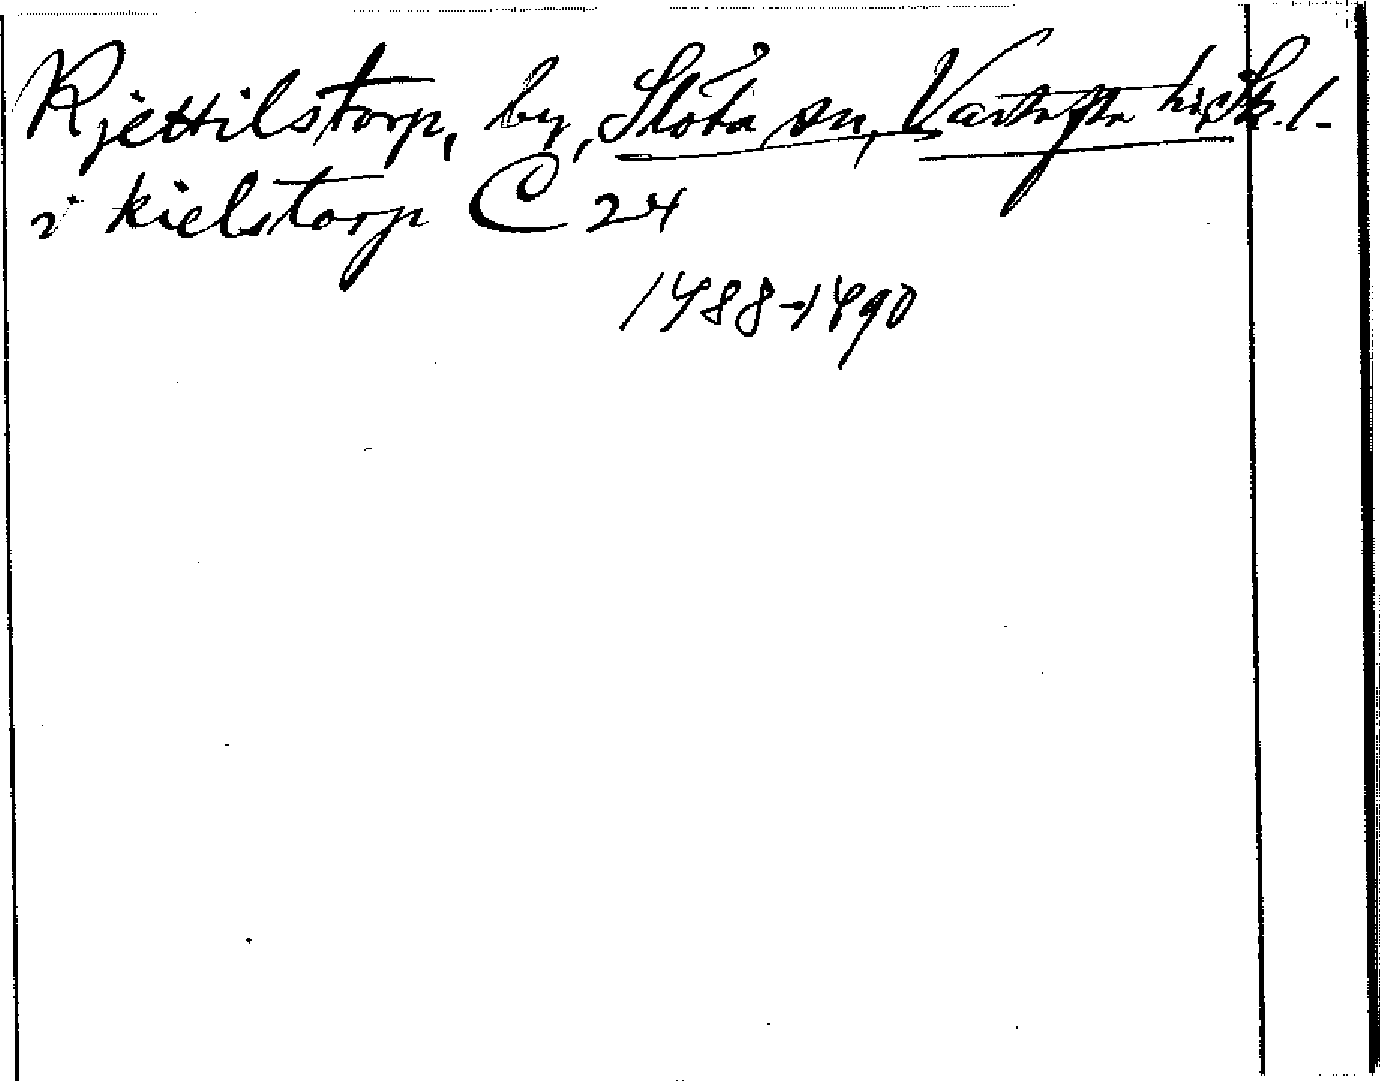 Kjettilstorp, by, Slöta sn, Vartofta hd, Sk. l.
i kielstorp C 24
1488-1490